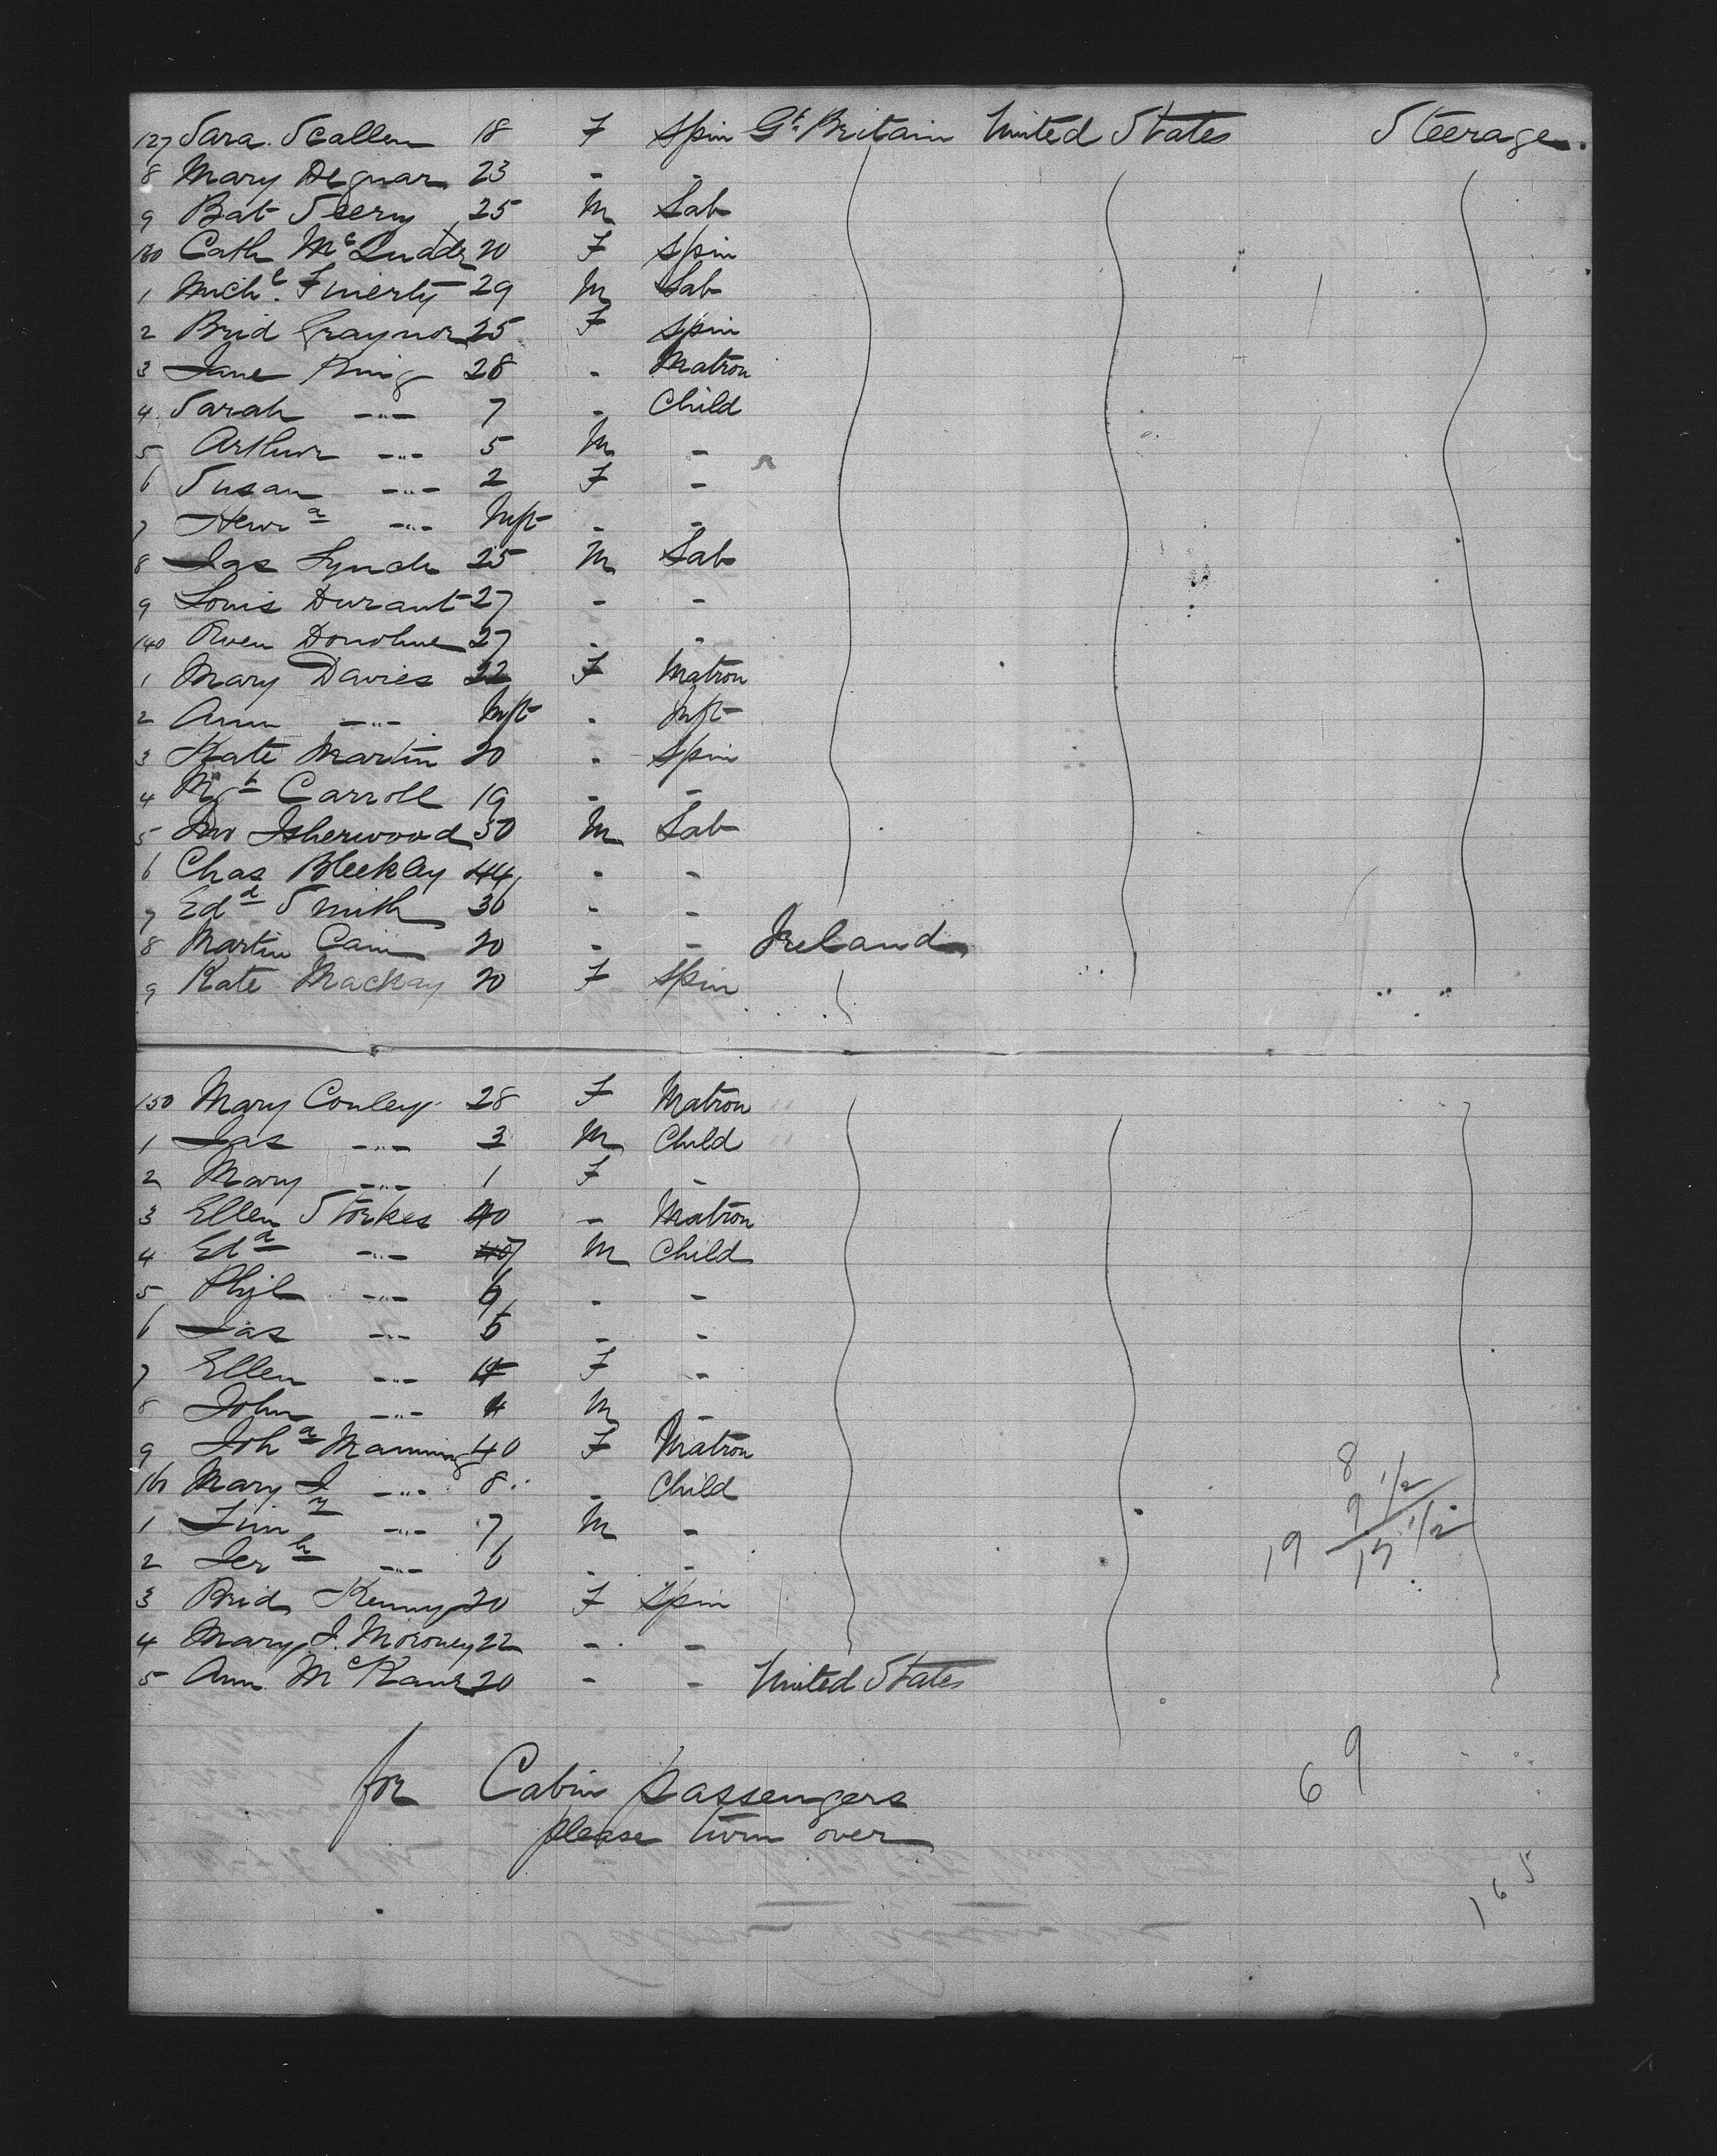 127 Sara Scallen 18 F Spin Gt. Britain United States Steerage.
8 Mary Degnan 23 - -
9 Bat Seery 25 M Lab
130 Cath 20 F Spin
1 Michl. Finerty 29 M Lab
2 Brid Graynor 25 F Spin
3 Jane King 28 - Matron
4 Sarah -"- 7 - Child
5 Arthur -"- 5 M -
6 Susan -"- 2 F -
7 Henra -"- Inft - -
8 Jas Lynch 25 M Lab
9 Louis Durant 27 - -
140 Owen Donohue 27 - -
1 Mary Davies 22 F Matron
2 Ann -"- Inft - Inft
3 Kate Martin 20 - Spin
4 Mgt Carroll 19 - -
5 Jno Isherwood 30 M Lab
6 Chas Bleekley 44 - -
7 Edd Smith 36 - -
8 Martin Cain 20 - - Ireland
9 Kate Mackay 20 F Spin
150 Mary Conley 28 F Matron
1 Jas -"- 3 M Child
2 Mary -"- 1 F -
3 Ellen Storkes 40 - Matron
4 Edd -"- 7 M Child
5 Phil -"- 6 - -
6 Jas -"- 5 - -
7 Ellen -"- 4 F -
8 John -"- 4 M -
9 Joha Manning 40 F Matron
160 Mary J -"- 8 - Child
1 Timy -"- 7 M -
2 Jerh -"- 6 - -
3 Brid Kenny 20 F Spin
4 Mary J. Moroney 22 - -
5 Ann McKane 20 - - United States
8
9 1/2
19 17 1/2
69
for Cabin passengers
please turn over
165